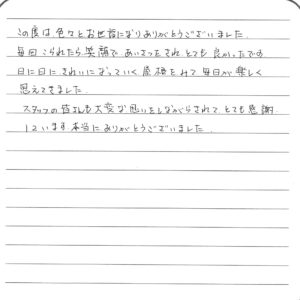 この度は色々とお世話になりありがとうございました.
毎回こられたら笑顔で、あいさつをされ、とても良かったです
日に日にきれいになっていく屋根をみて毎日が楽しく
思えてきました.
スタッフの皆さんも大変な思いをしながらされて、とても感謝
しています.本当にありがとうございました.